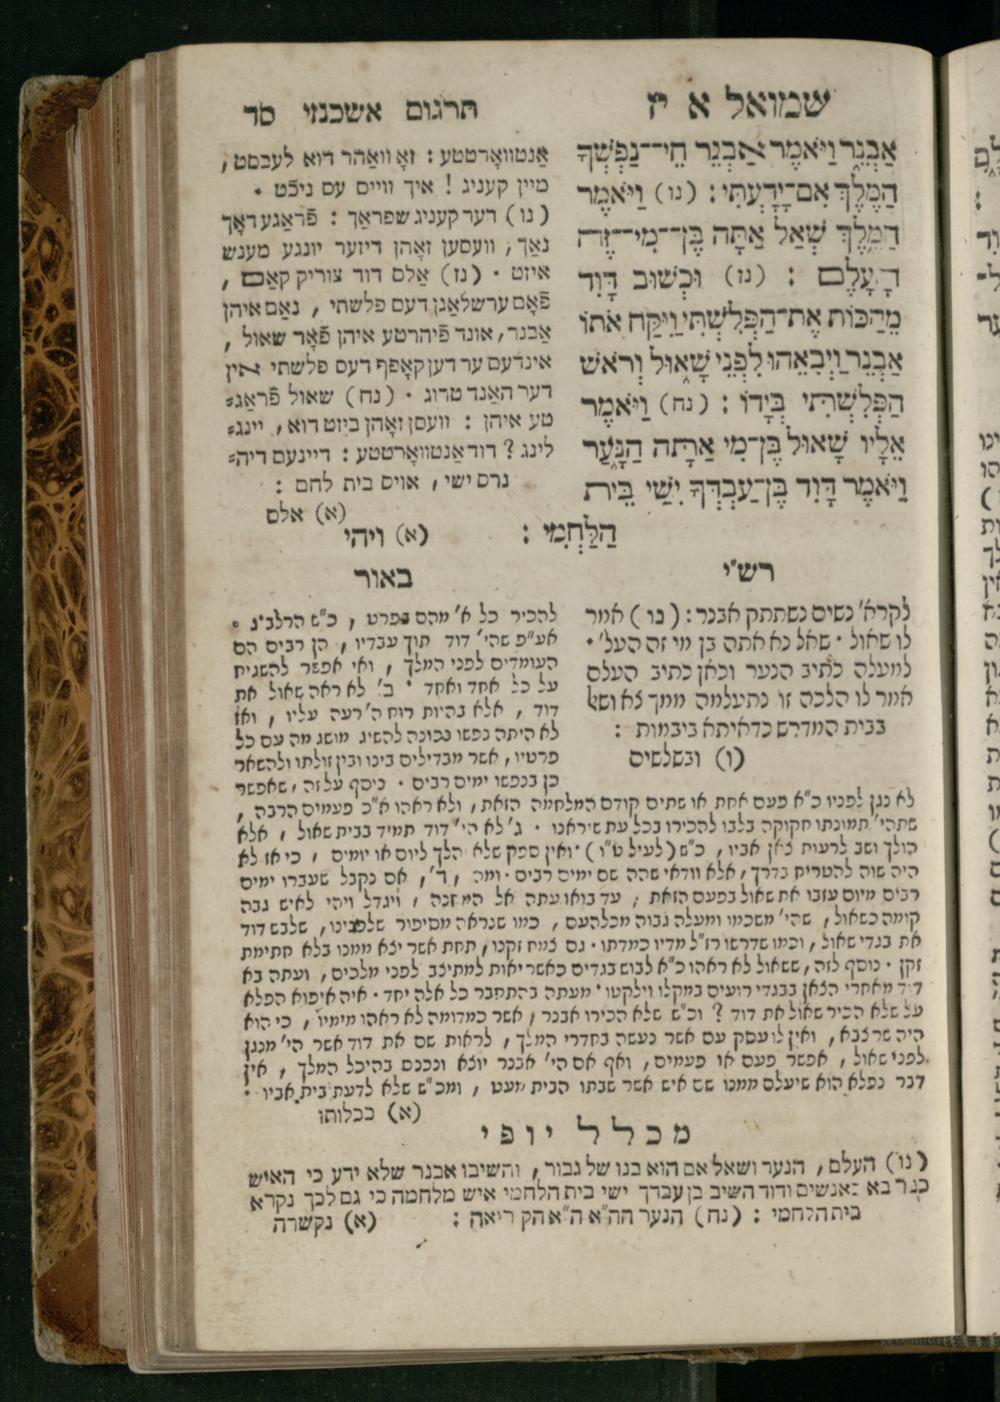 שמואל א יז
אַבְנֵר וַיֹּאמֶר אַבְנֵר חֵי־נַפְשְׁךָ
הַמֶּלֶךְ אִם־יָדָעְתִּי : (נו) וַיֹּאמֶר
הַמֶּלֶךְ שְׁאַל אַתָּה בֶּן־מִי־זֶה
הָעָלֶם : (נז) וּכְשׁוּב דָּוִד
מֵהַכּוֹת אֶת־הַפְּלִשְׁתִּי וַיִּקַּח אֹתוֹ
אַבְנֵר וַיְבִאֵהוּ לִפְנֵי שָׁאוּל וְרֹאשׁ
הַפְּלִשְׁתִּי בְּיָדוֹ : (נח) וַיֹּאמֶר
אֵלָיו שָׁאוּל בֶּן־מִי אַתָּה הַנָּעַר
וַיֹּאמֶר דָּוִד בֶּן־עַבְדְּךָ יִשַׁי בֵּית
הַלַּחְמִי :
(א) ויהי
תרגום אשכנזי סד
אַנטוואָרטטע : זאָ וואַהר דוא לעבסט ,
מיין קעניג ! איך ווייס עס ניכֿט .
(נו) דער קעניג שפראַך : פֿראַגע דאָך
נאַך , וועסען זאָהן דיזער יונגע מענש
איזט . (נז) אַלס דוד צוריק קאַם ,
פֿאָם ערשלאַגן דעם פלשתי , נאַם איהן
אַבנר , אונד פֿיהרטע איהן פֿאָר שאול ,
אינדעם ער דען קאָפף דעס פלשתי אין
דער האַנד טרוג . (נח) שאול פֿראַג=
טע איהן : וועסן זאָהן ביזט דוא , יינג=
לינג ? דוד אַנטוואָרטטע : דיינעס דיה=
נרס ישי , אויס בית לחם :
(א) אלס
רש"י
לקרא' נשים נשתתק אבנר : (נו) אמר
לו שאול . שאל נא אתה בן מי זה העל' .
למעלה כתיב הנער וכאן כתיב העלם
אמר לו הלכה זו נתעלמה ממך צא ושאל
בבית המדרש כדאיתא ביבמות :
(ו) ובשלשים
באור
להכיר כל א' מהם בפרט , כ"ש הרלב"ג .
אע"פ שהי' דוד תוך עבדיו , הן רבים הם
העומדים לפני המלך , ואי אפשר להשגיח
על כל אחד ואחד . ב' לא ראה שאול את
דוד , אלא בהיות רוח ה' רעה עליו , ואז
לא היתה נפשו נכונה להשיג מושג מה עם כל
פרטיו , אשר מבדילים בינו ובין זולתו ולהשאר
כן בנפשו ימים רבים . ניסף על זה , שאפשר
לא נגן לפניו כ"א פעם אחת או שתים קודם המלחמה הזאת , ולא ראהו א"כ פעמים הרבה ,
שתהי' תמונתו חקוקה בלבו להכירו בכל עת שיראנו . ג' לא הי' דוד תמיד בבית שאול , אלא
הולך ושב לרעות צאן אביו , כ"ש (לעיל ט"ו) . ואין ספק שלא הלך ליום או יומים , כי אז לא
היה שוה להטריח בדרך , אלא וודאי שהה שם ימים רבים . ומה , ד' , אם נקבל שעברו ימים
רבים מיום עזבו את שאול בפעם הזאת , עד בואו עתה אל המחנה , ויגדל ויהי לאיש גבה
קומה כשאול , שהי' משכמו ומעלה גבוה מכל העם , כמו שנראה מסיפור שלפנינו , שלבש דוד
את בגדי שאול , וכמו שדרשו רז"ל מדיו כמדתו . גם צמח זקנו , תחת אשר יצא ממנו בלא חתימת
זקן . נוסף לזה , ששאול לא ראהו כ"א לבוש בגדים כאשר יאות למתיצב לפני מלכים , ועתה בא
דוד מאחרי הצאן בבגדי רועים במקלו וילקטו . מעתה בהתחבר כל אלה יחד . איה איפוא הפלא
על שלא הכיר שאול את דוד ? וכ"ש שלא הכירו אבנר , אשר כמדומה לא ראהו מימיו , כי הוא
היה שר צבא , ואין לו עסק עם אשר נעשה בחדרי המלך , לראות שם את דוד אשר הי' מנגן
לפני שאול , אפשר פעם או פעמים , ואף אם הי' אבנר יוצא ונכנס בהיכל המלך , אין
דבר נפלא הוא שיעלם ממנו שם איש אשר שבתו הבית מעט , ומכ"ש שלא לדעת בית אביו .
(א) ככלותו
מכלל יופי
(נו) העלם , הנער ושאל אם הוא בנו של גבור , והשיבו אבנר שלא ידע כי האיש
כבר בא באנשים ודוד השיב בן עבדך ישי בית הלחמי איש מלחמה כי גם לכך נקרא
בית הלחמי : (נח) הנער הה"א ה"א הקריאה :
(א) נקשרה